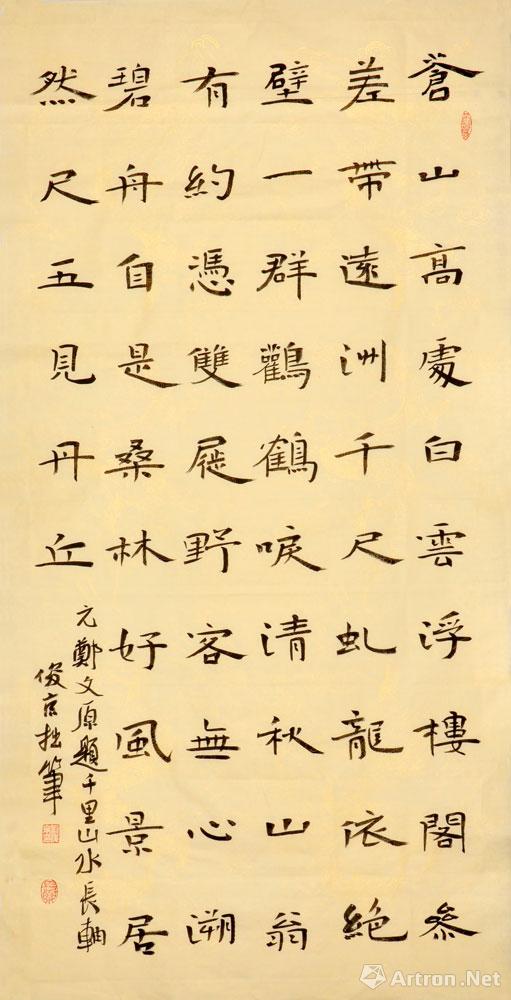 蒼山高處白雲浮樓閣參
差帶遠洲千尺虬龍依絕
壁一群鸛鶴唳清秋山翁
有約憑雙屐野客無心溯
碧舟自是桑林好風景居
然尺五見丹丘
元鄭文原題千里山水長軸
俊京拙筆
Artron.Net